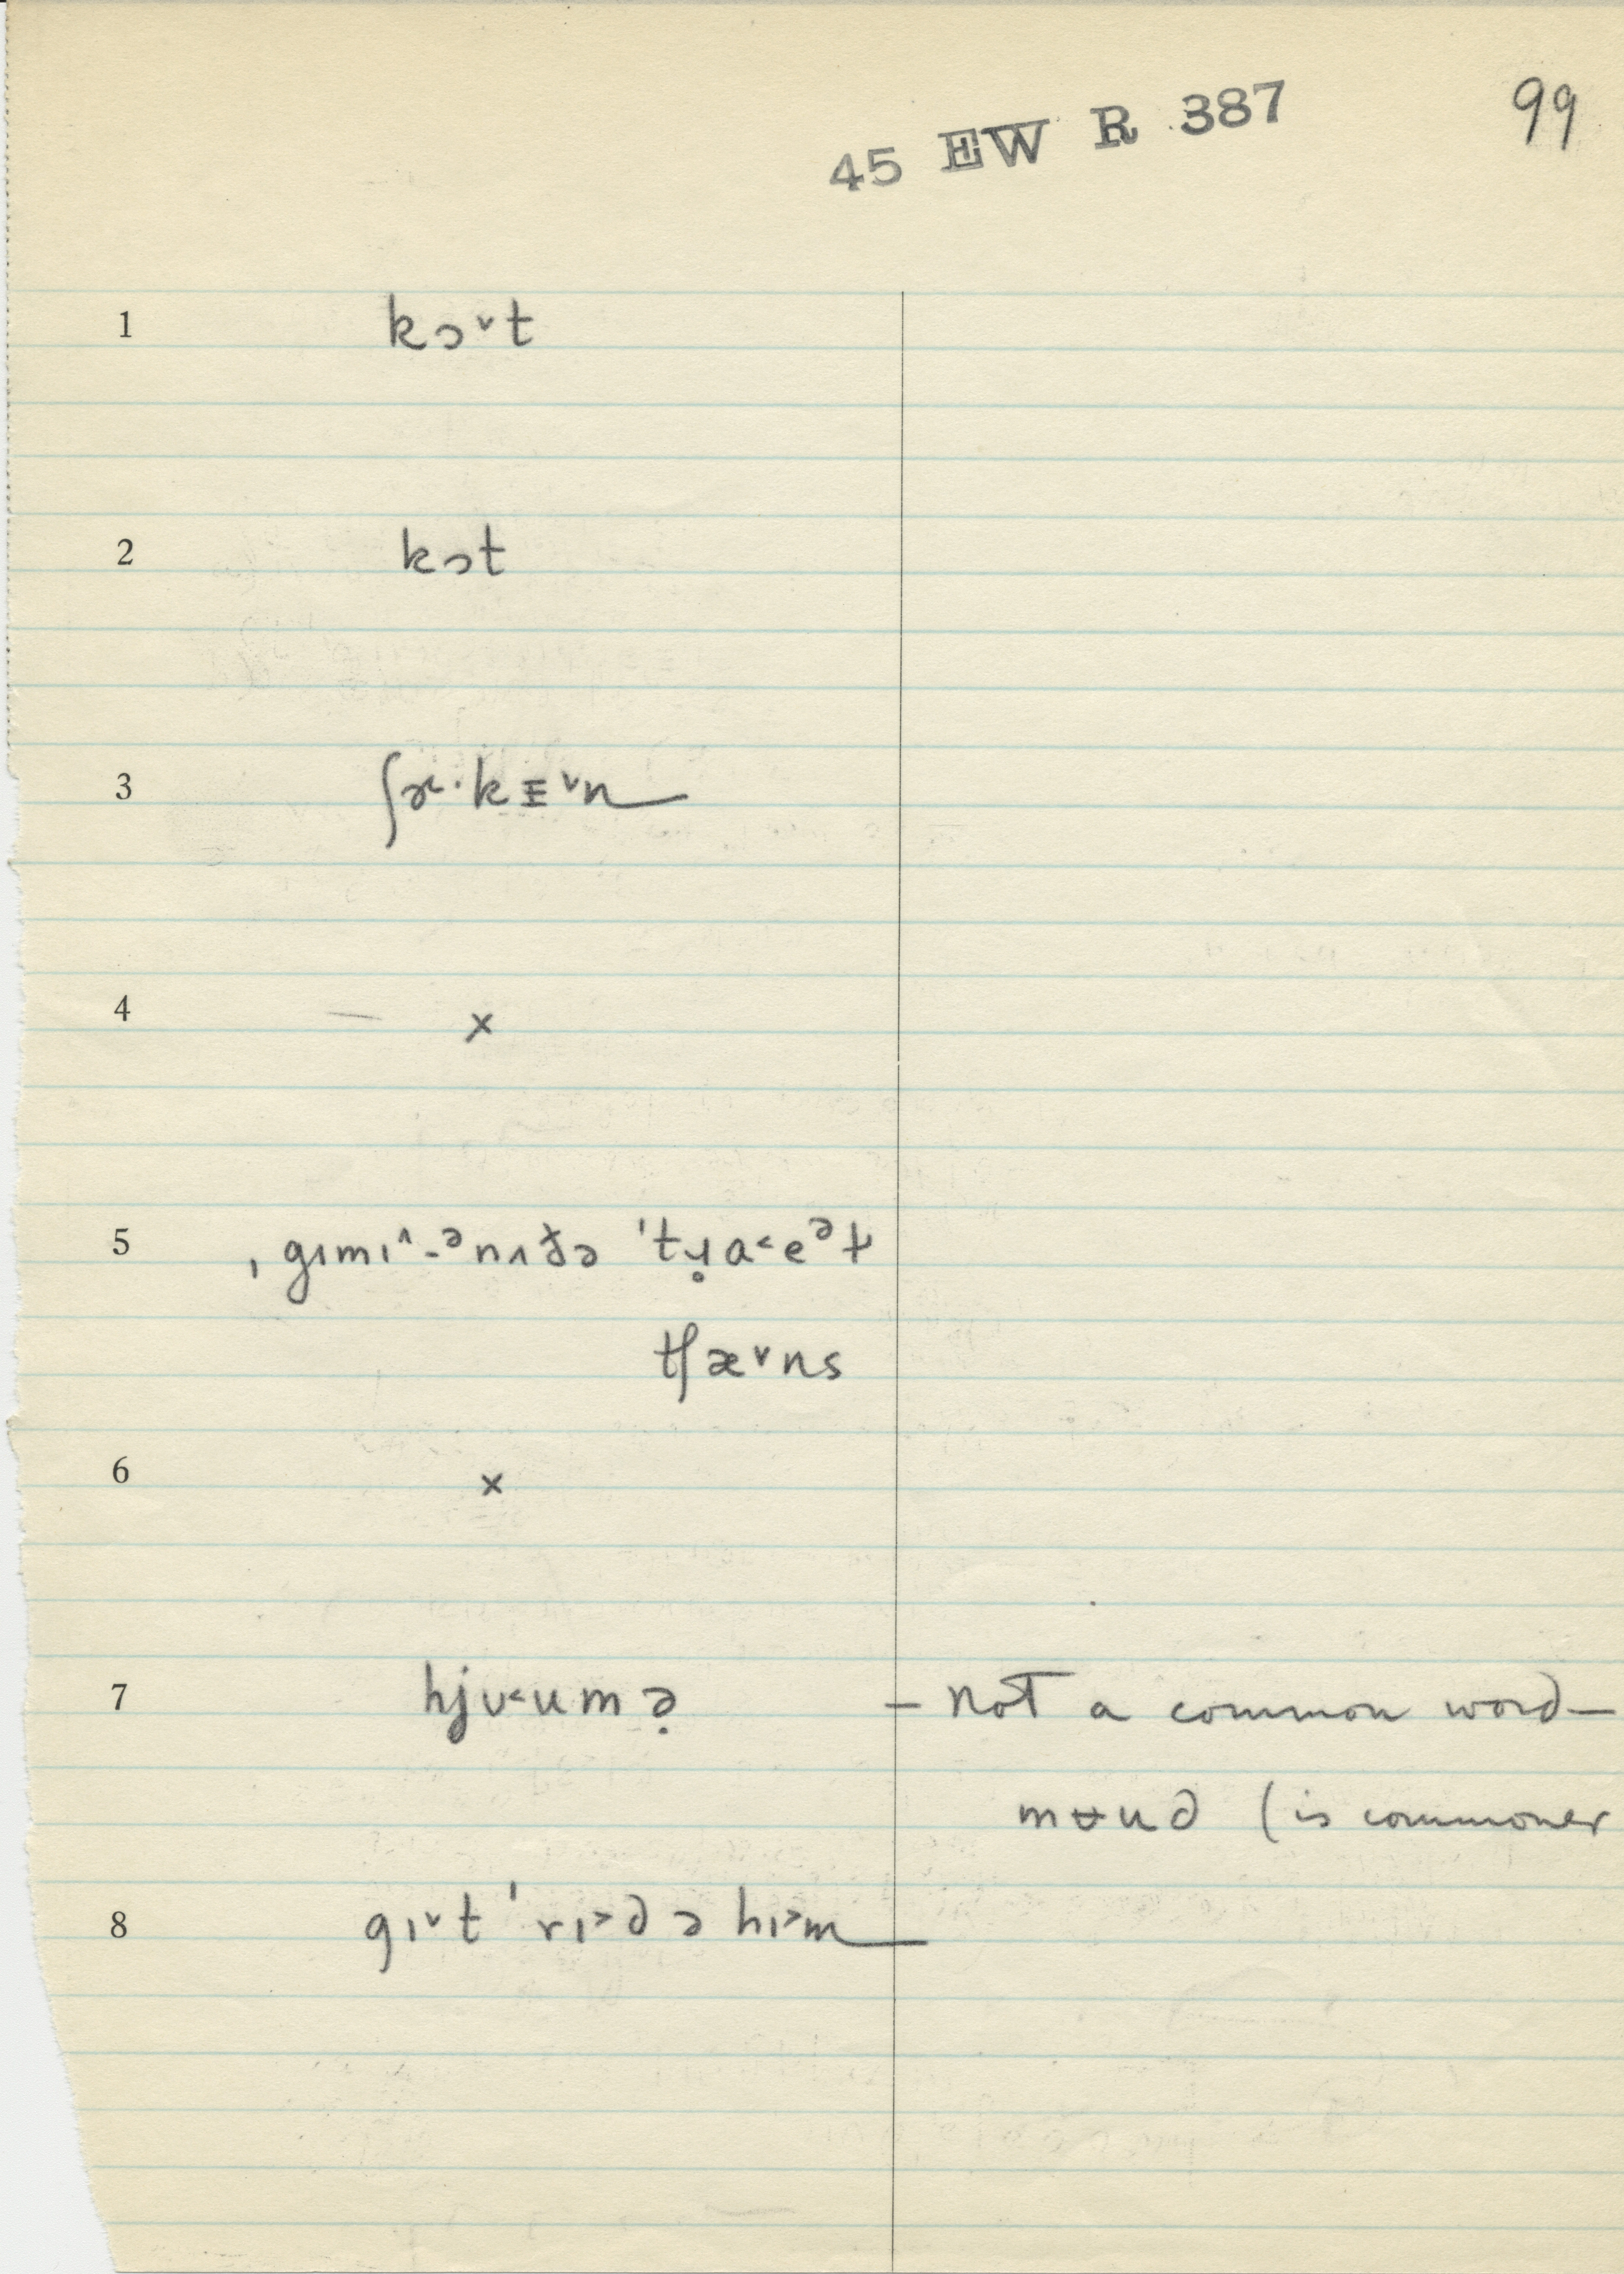 45 EW R 387
99
1 kɔ˅t
2 kɔt
3 ʃɚ·kᴇ˅n
4 ×
5 ˌgɪmɪ˄-ᵊnʌðə ˈtɹ̥a˂eᵊɫ
tʃæ˅ns
6 ×
7 hjʊ˂umə̣ – not a common word –
mʉud (is commoner
8 gɪ˅t ˈrɪ˃d ə hɪ˃m